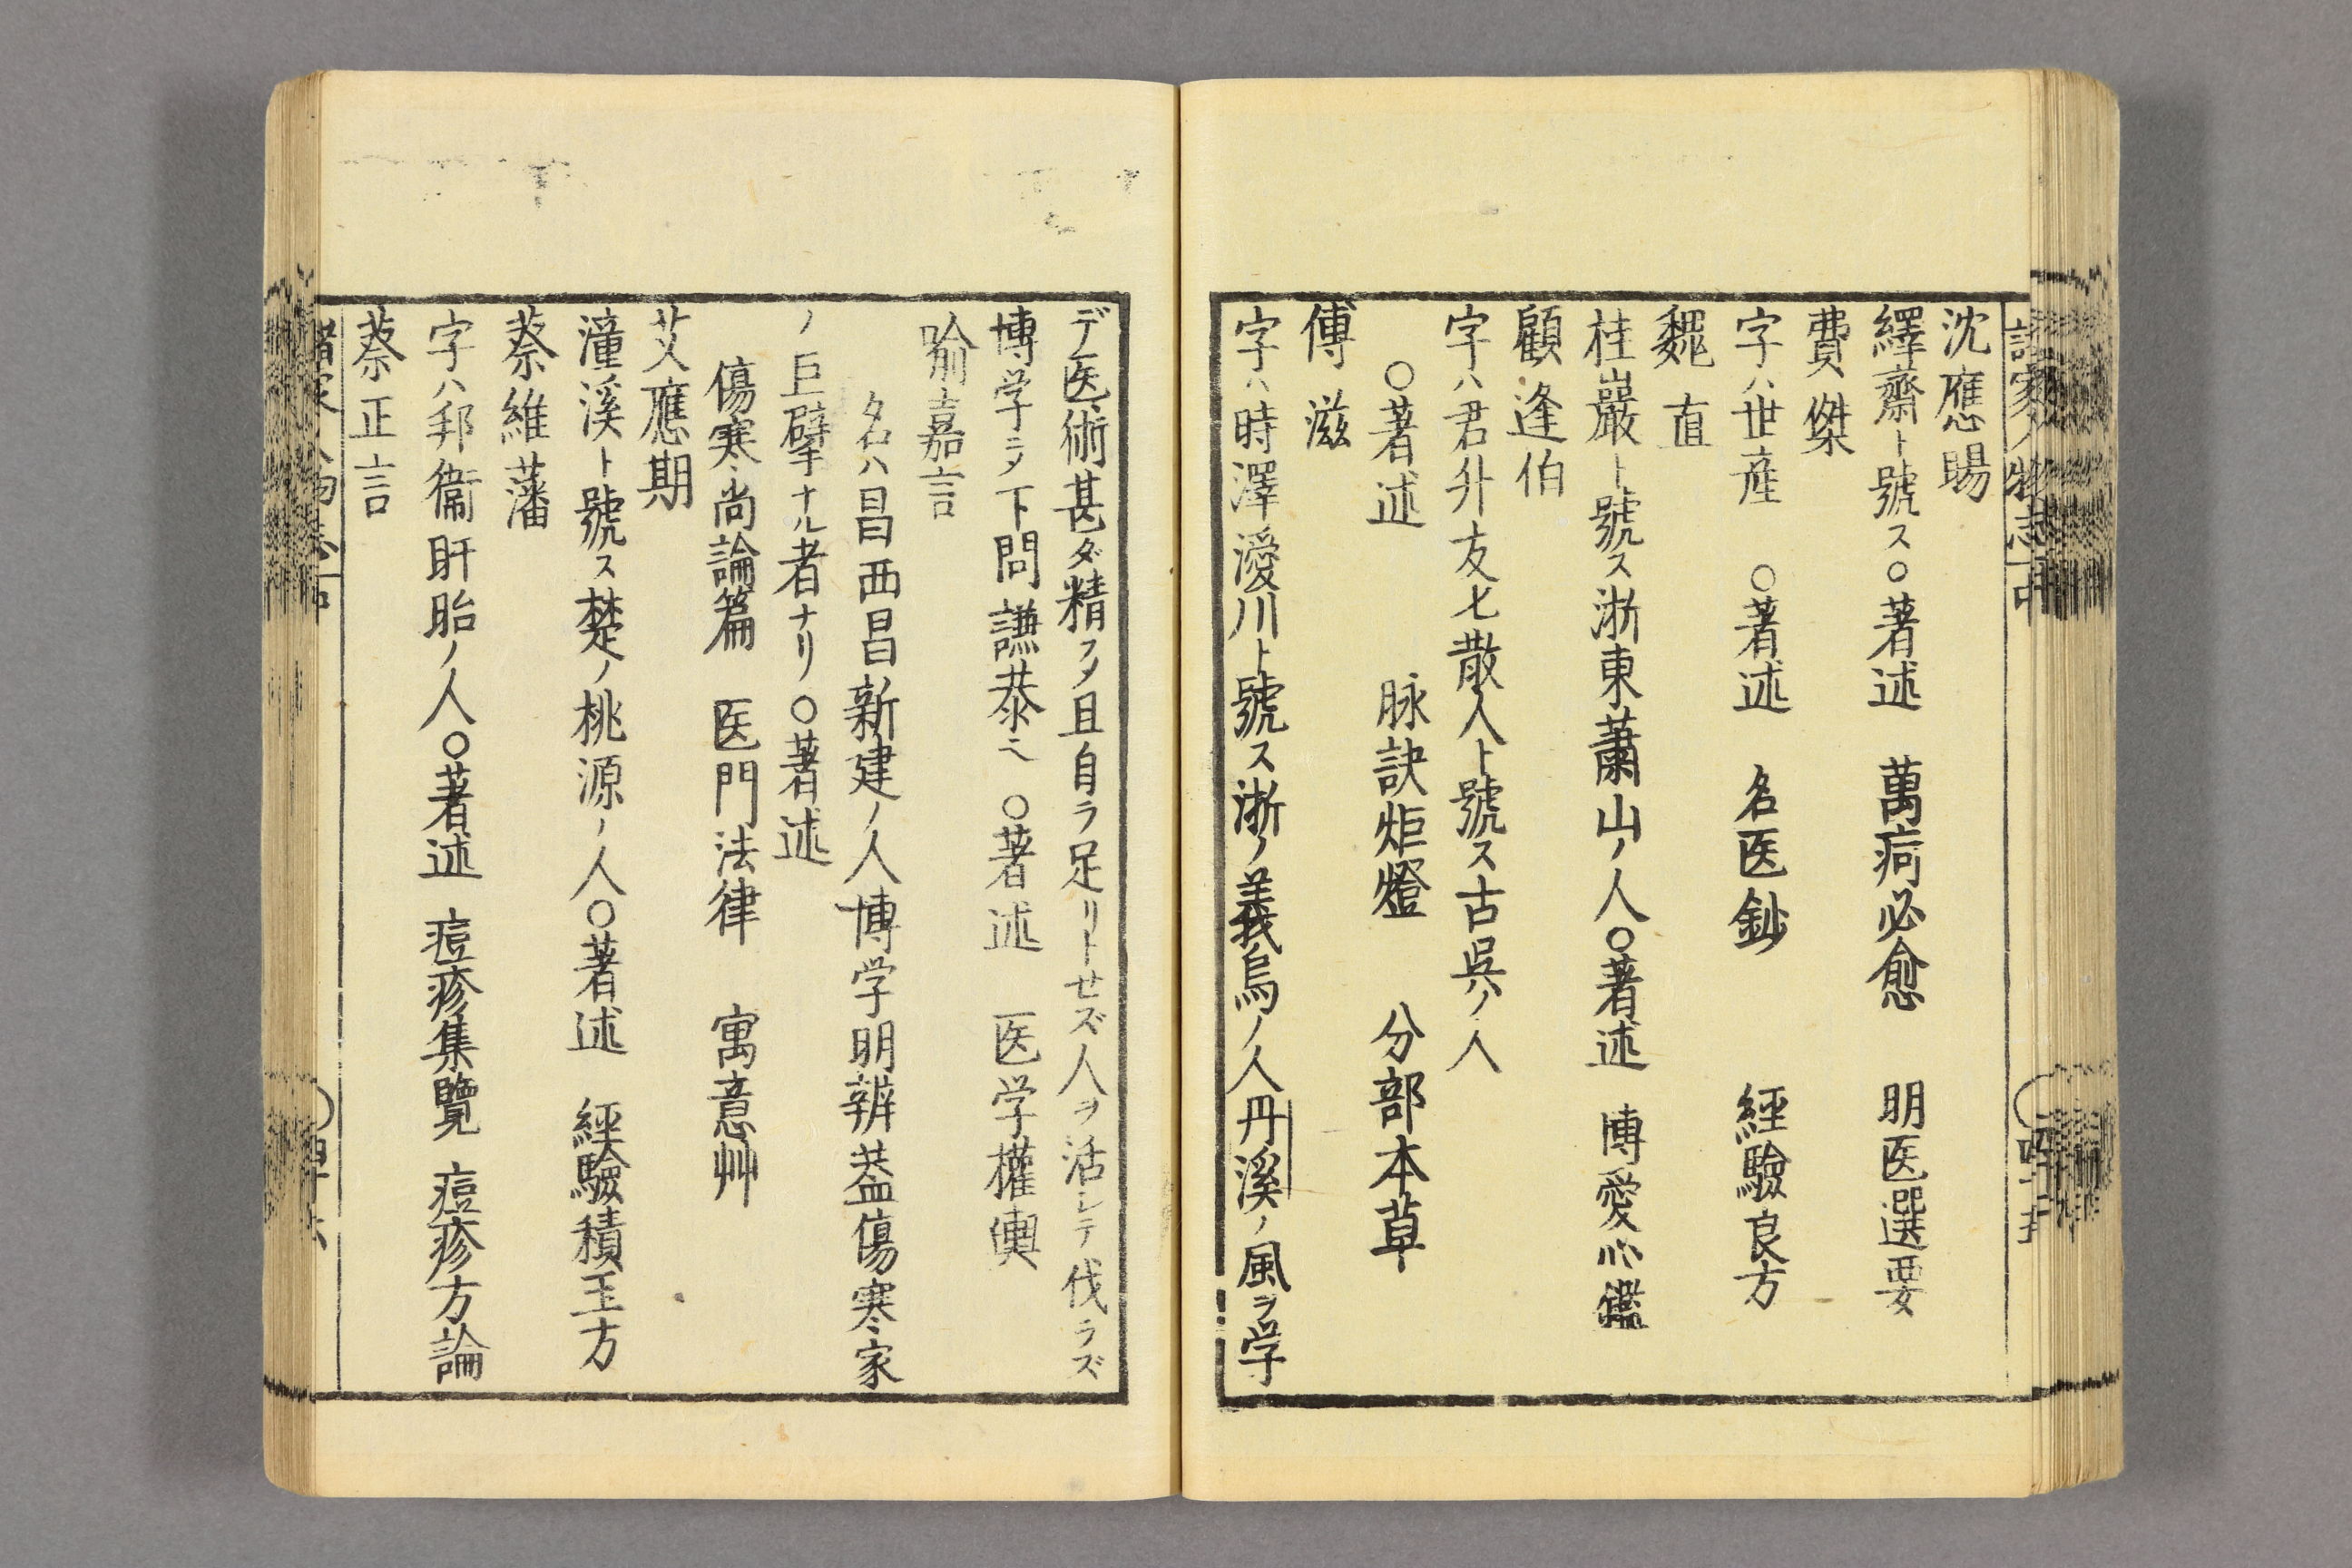 諸家人物志 中
沈應暘
繹齋ト號ス○著述　萬病必愈　明医選要
費傑
字ハ世産　○著述　名医鈔　經驗良方
魏直
桂巖ト號ス浙東蕭山ノ人○著述　博愛心鑑
顧逢伯
字ハ君升友七散人ト號ス古呉ノ人
○著述　脉訣炬燈　分部本草
傅滋
字ハ時澤濅川ト號ス浙ノ義烏ノ人丹溪ノ風ヲ学
デ医術甚ダ精フメ且自ラ足リトセズ人ヲ活レテ伐ラズ
博学ニメ下問謙恭ニ　○著述　医学權輿
喻嘉言
名ハ昌西昌新建ノ人博学明辨葢傷寒家
ノ巨擘ナル者ナリ○著述
傷寒尚論篇　医門法律　寓意艸
艾應期
潼溪ト號ス楚ノ桃源ノ人○著述　經驗積玉方
蔡維藩
字ハ邦衞盱眙ノ人○著述　痘疹集覽　痘疹方論
蔡正言